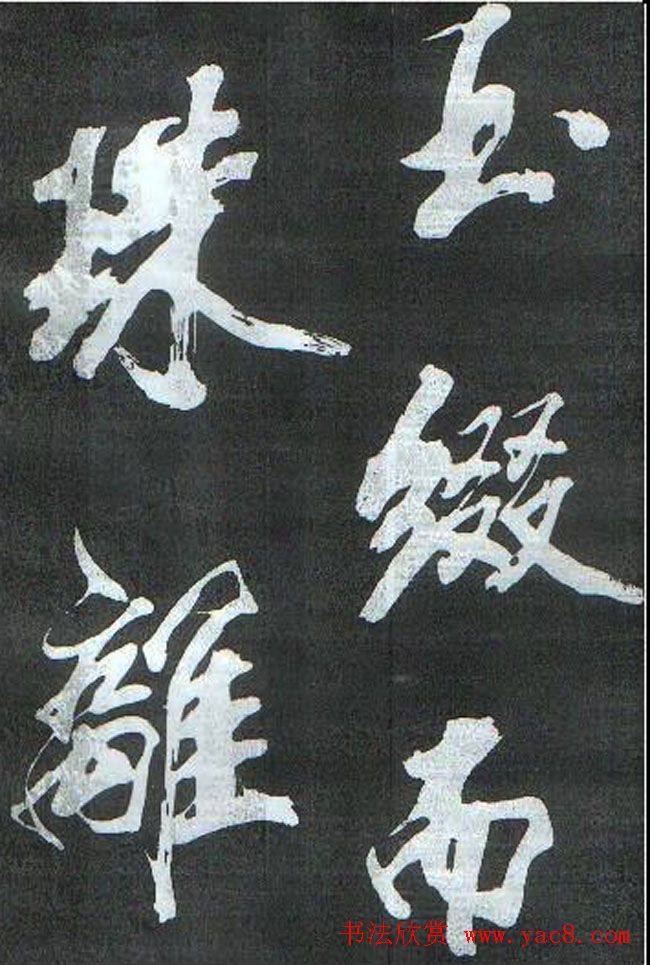 玉綴而
珠離
书法欣赏 www.yac8.com